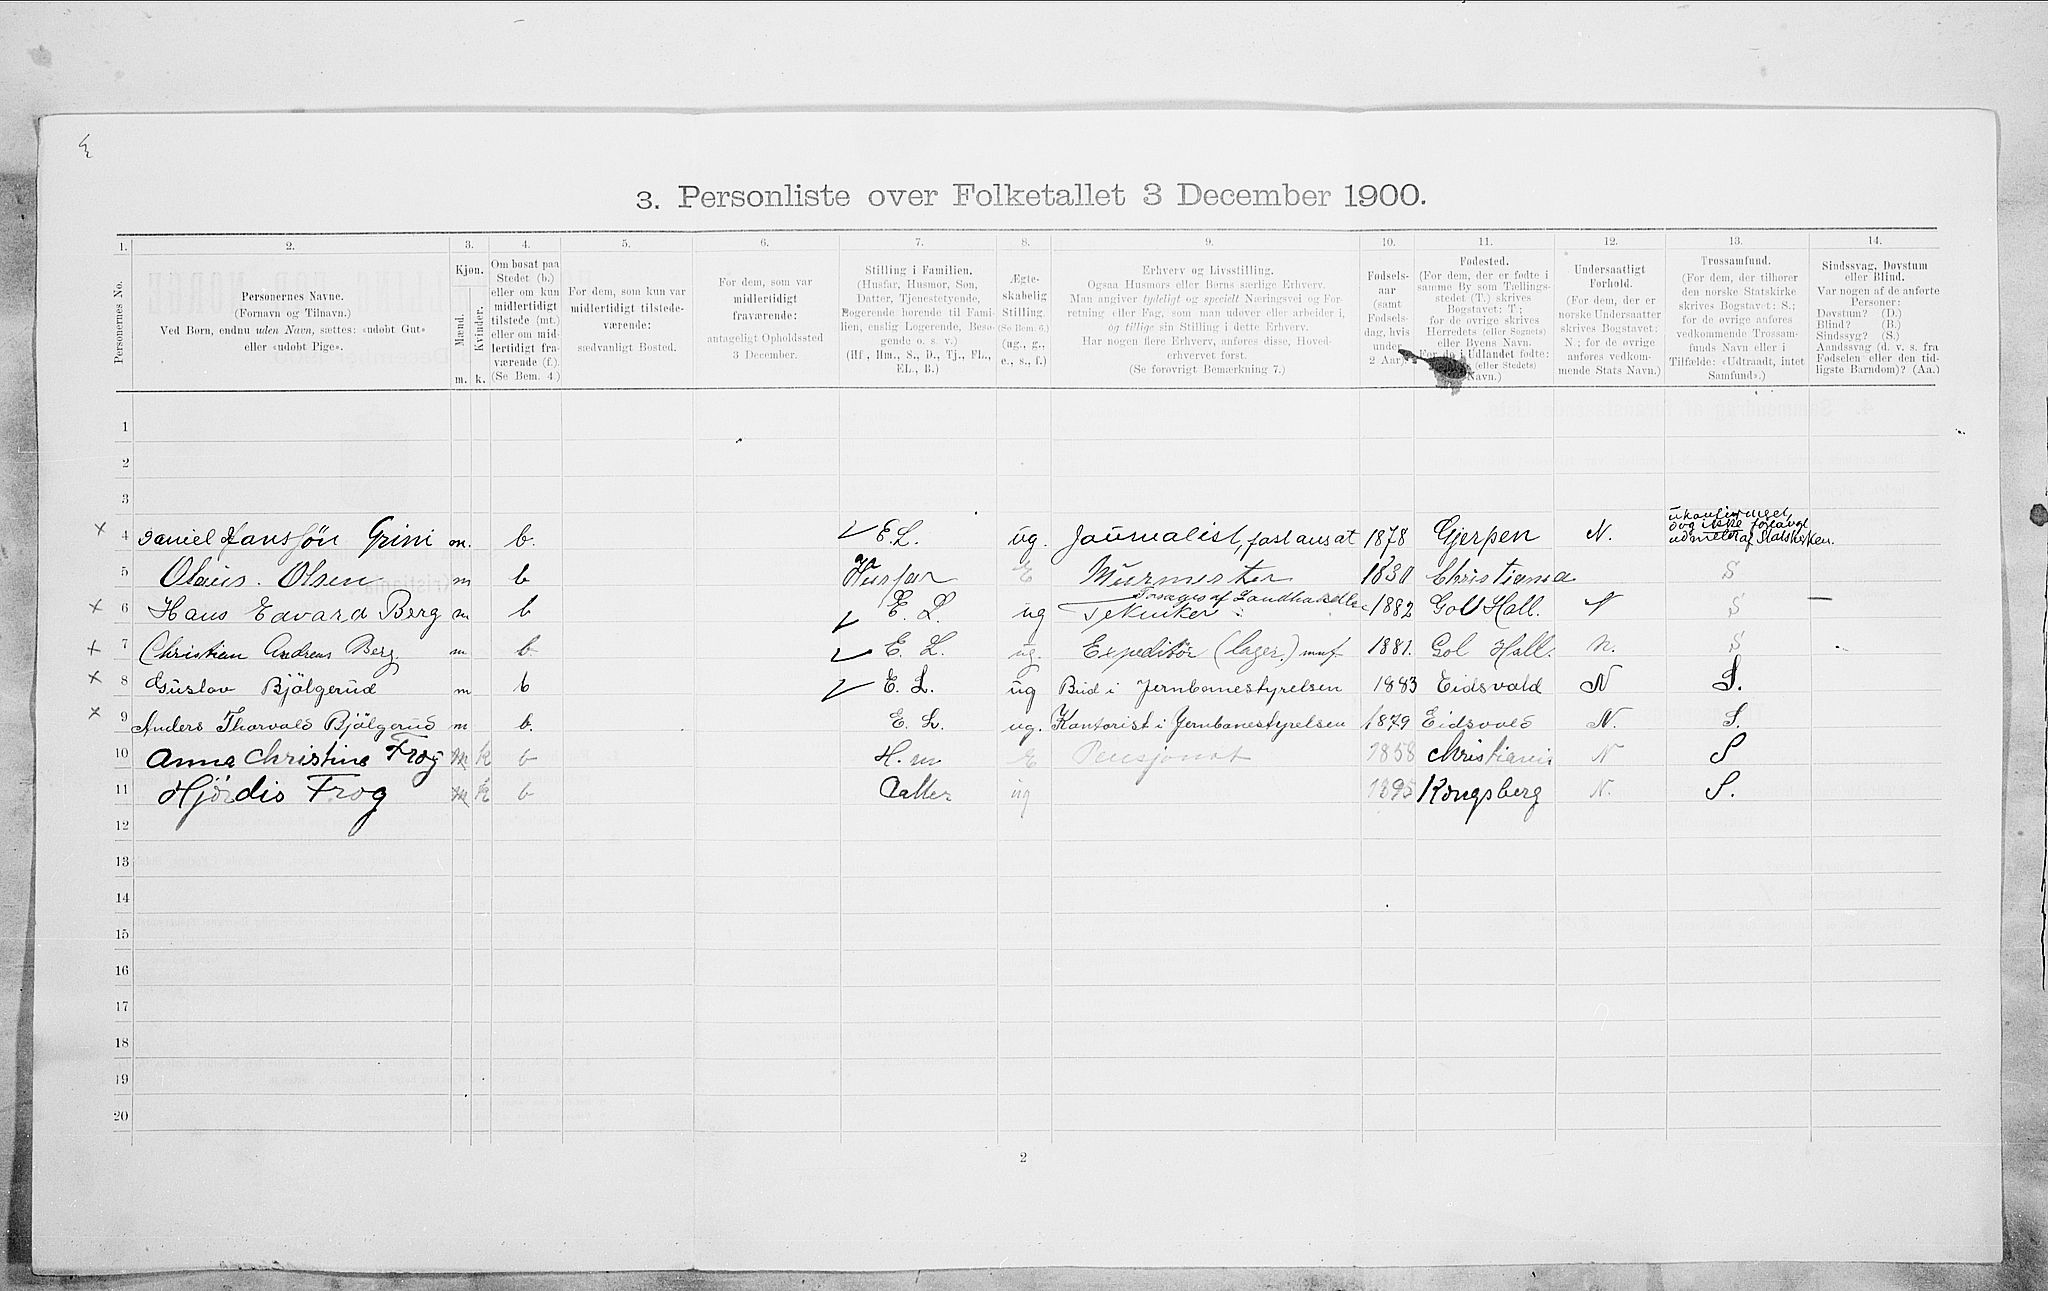 3. Personliste over Folketallet 3 December 1900.
1. 2. 3. 4. 5. 6. 7. 8. 9. 10. 11. 12. 13. 14.
Personernes No.
Personernes Navne.
(Fornavn og Tilnavn.)
Ved Børn, endnu uden Navn, sættes: «udøbt Gut»
eller «udøbt Pige».
Kjøn.
Mænd. Kvinder.
m. k.
Om bosat paa
Stedet (b.)
eller om kun
midlertidigt
tilstede (mt.)
eller om mid-
lertidigt fra-
værende (f.)
(Se Bem. 4.)
For dem, som kun var
midlertidigt tilstede-
værende:
sædvanligt Bosted.
For dem, som var
midlertidigt
fraværende:
antageligt Opholdssted
3 December.
Stilling i Familien.
(Husfar, Husmor, Søn,
Datter, Tjenestetyende,
Logerende hørende til Fami-
lien, enslig Logerende, Besø-
gende o. s. v.)
(Hf, Hm., S., D., Tj., FL.,
EL., B.)
Ægte-
skabelig
Stilling.
(Se Bem. 6.)
(ug., g.,
e., s., f.)
Erhverv og Livsstilling.
Ogsaa Husmors eller Børns særlige Erhverv.
Man angiver tydeligt og specielt Næringsvei og For-
retning eller Fag, som man udøver eller arbeider i,
og tillige sin Stilling i dette Erhverv.
Har nogen flere Erhverv, anføres disse, Hoved-
erhvervet først.
(Se forøvrigt Bemærkning 7.)
Fødsels-
aar
(samt
Fødsels-
dag, hvis
under
2 Aar).
Fødested.
(For dem, der er fødte i
samme By som Tællings-
stedet (T.) skrives
Bogstavet: T;
for de øvrige skrives
Herredets (eller Sognets)
eller Byens Navn.
For de i Udlandet fødte:
(eller Stedets)
Navn.)
Undersaatligt
Forhold.
(For dem, der er
norske Undersaatter
skrives Bogstavet:
N.; for de øvrige
anføres vedkom-
mende Stats Navn.)
Trossamfund.
(For dem, der tilhører
den norske Statskirke
skrives Bogstavet: S.;
for de øvrige anføres
vedkommende Trossam-
funds Navn eller i
Tilfælde: «Udtraadt, intet
Samfund».)
Sindssvag, Døvstum
eller Blind.
Var nogen af de anførte
Personer:
Døvstum? (D.)
Blind? (B.)
Sindssyg? (S.)
Aandssvag (d. v. s. fra
Fødselen eller den tid-
ligste Barndom)? (Aa.)
1
2
3
4 Daniel Hanssøn Grini m. b. E.L. ug. Journalist, fast ansat 1878 Gjerpen N. og ikke forlangt udmeldt af Statskirken.
5 Olaus. Olsen m b Husfar E Murmester Christiania S
6 Hans Edvard Berg m b E. L. ug Tekniker af Landhandler 1882 Gol Hall. N S —
7 Christian Andreas Berg m b E. L. ug. Expeditør (lager.) 1881. Gol Hall. N. S
8 Gustav Bjølgerud m b E. L. ug Bud i Jernbanestyrelsen 1883 Eidsvold N S.
9 Anders Thorvald Bjølgerud m b. E L. ug. Kontorist i Jernbanestyrelsen 1879 Eidsvold N. S.
10 Anna Christine Frog k b H. m E Pensjonat 1858 Christiania N S
11 Hjørdis Frog k b Datter ug 1895 Kongsberg N. S.
12
13
14
15
16
17
18
19
20
2